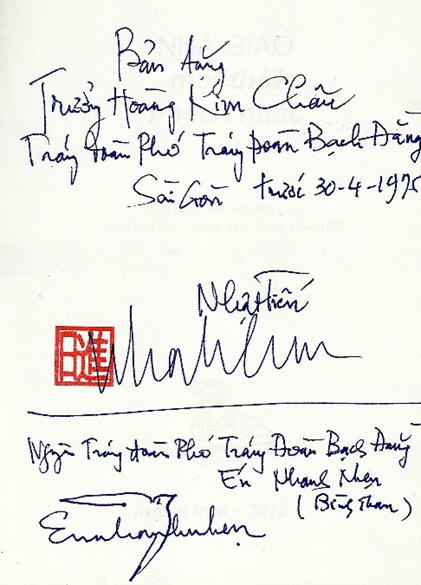 Bản tặng
Trưởng Hoàng Kim Châu
Tráng Đoàn Phó Tráng Đoàn Bạch Đằng
Sài Gòn trước 30-4-1975
Nhật Tiến
日進
Nguyên Tráng Đoàn Phó Tráng Đoàn Bạch Đằng
Én Nhanh Nhẹn